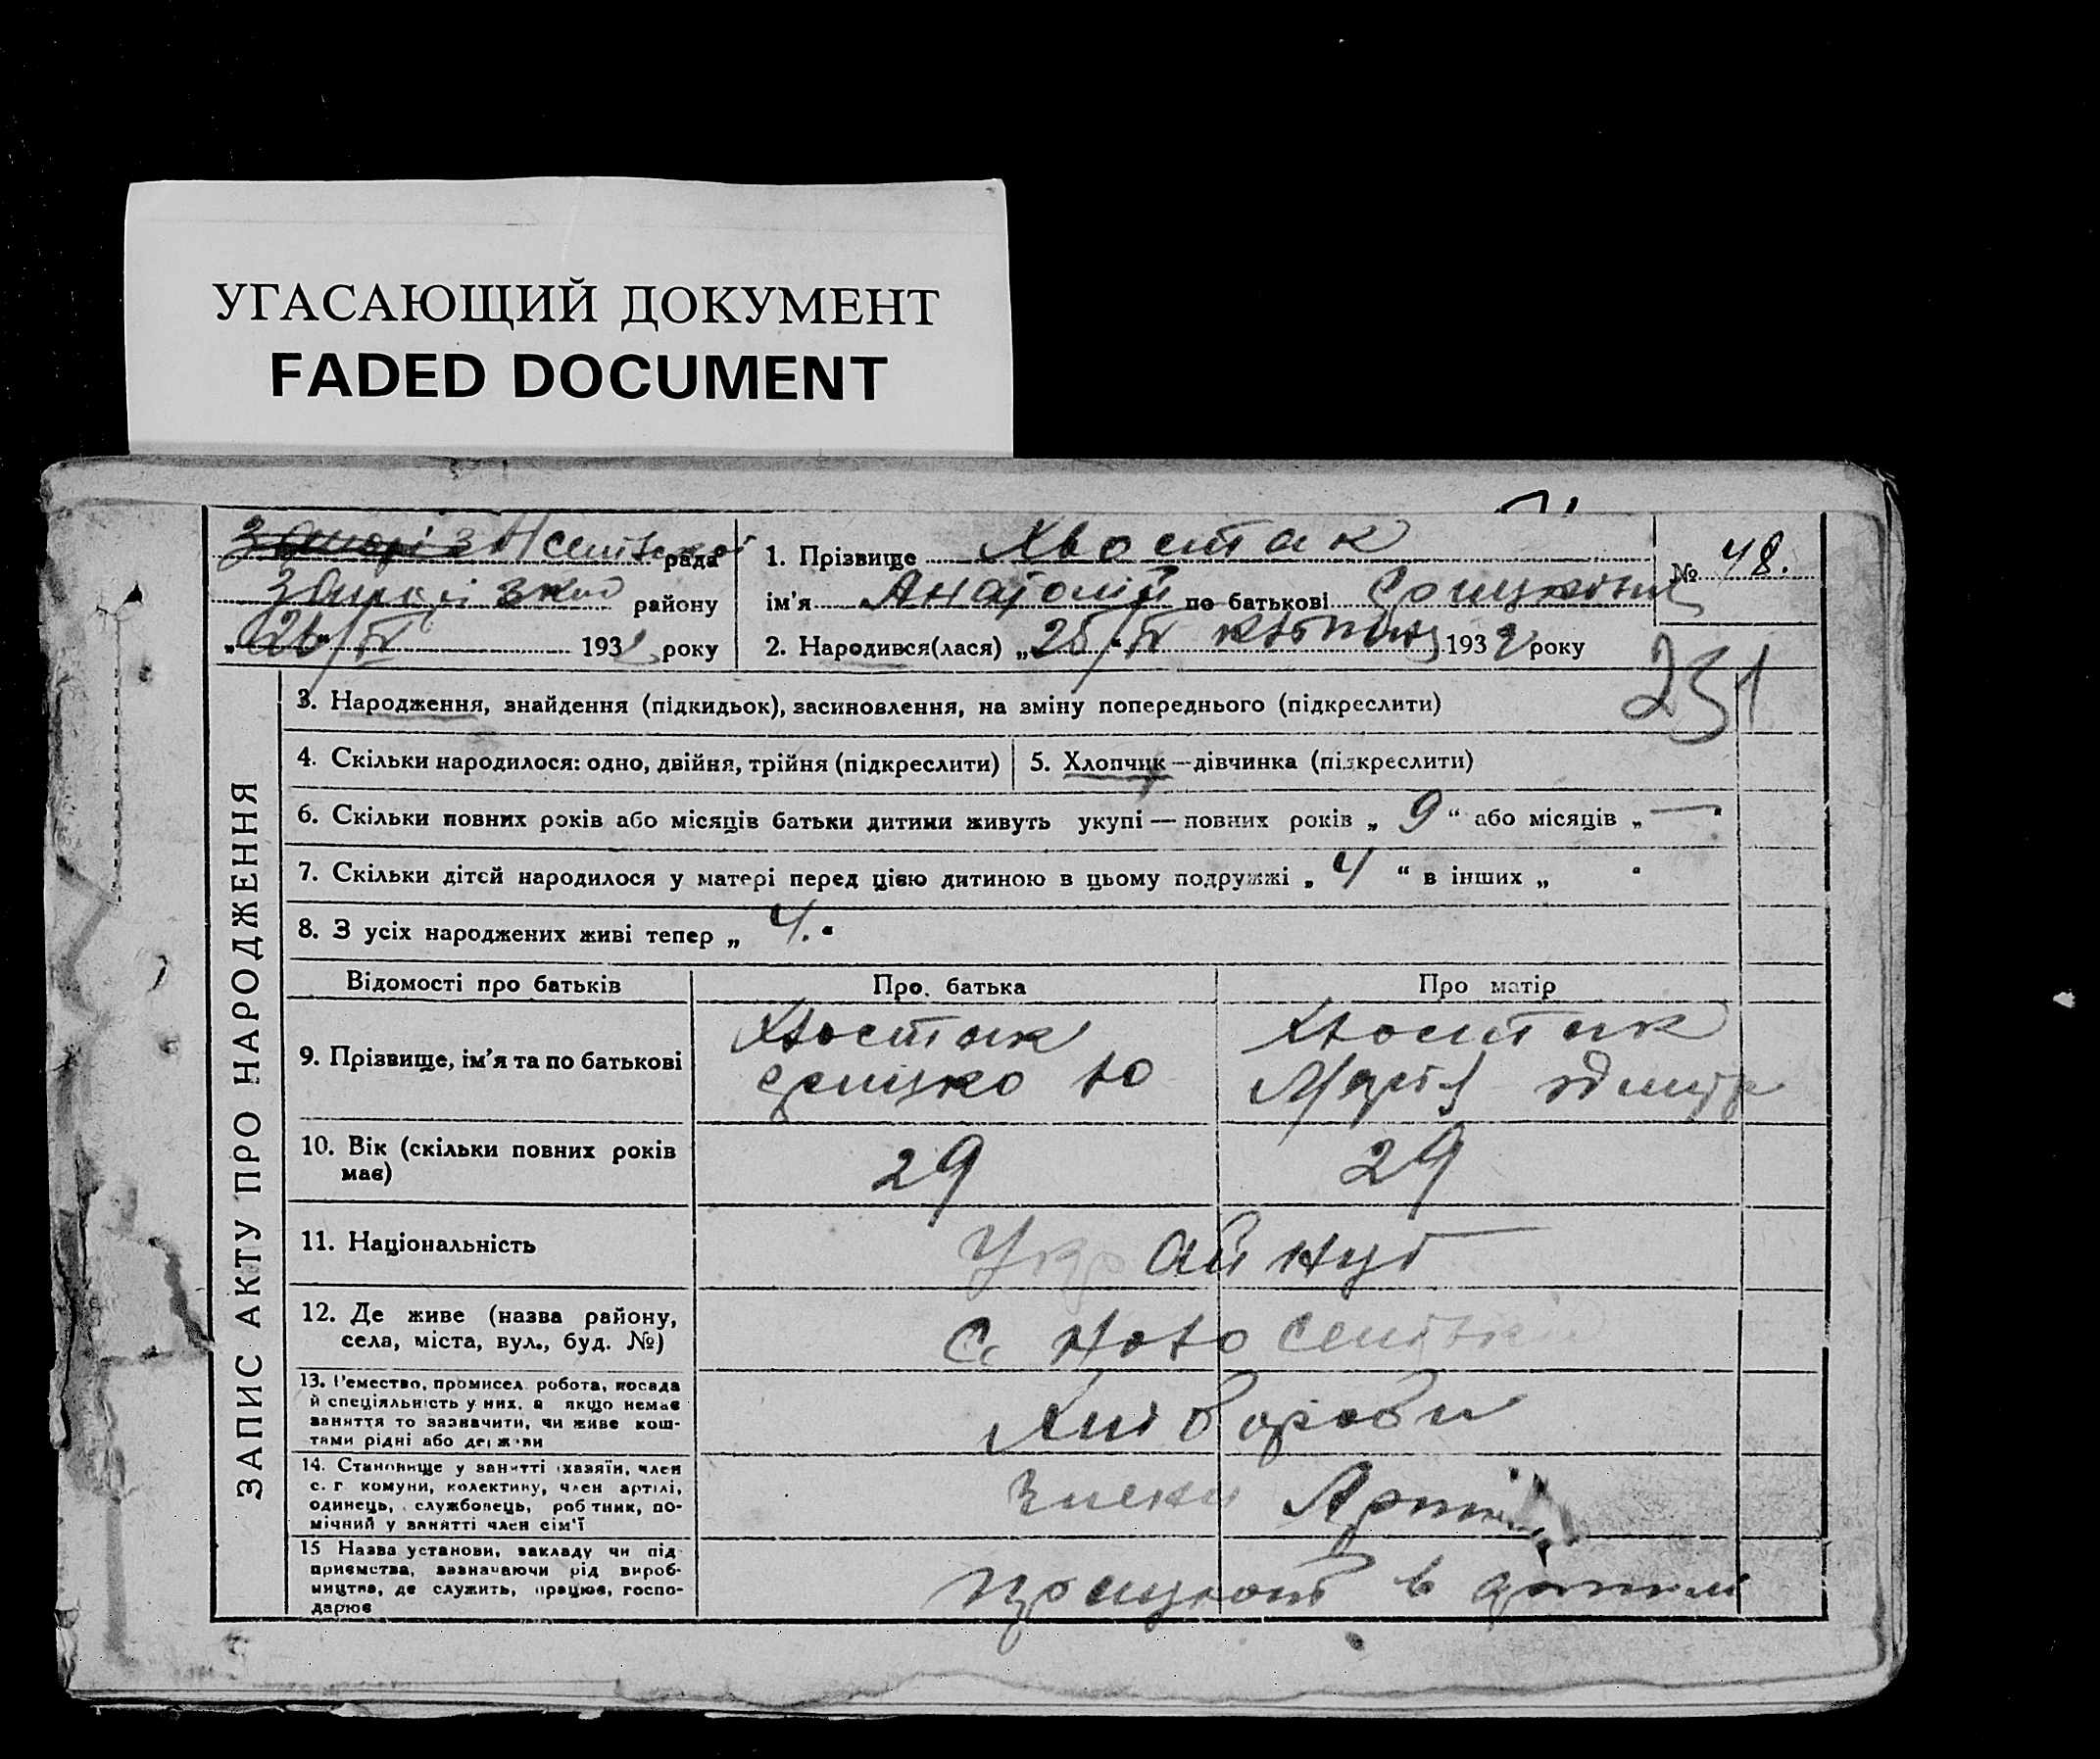 УГАСАЮЩИЙ ДОКУМЕНТ
FADED DOCUMENT
рада
району
26/IV 193 року
1. Прізвище Хвостак
ім'я Анатолій по батькові
2. Народився(лася) „25/IV квітня 1932 року
№ 48.
251
ЗАПИС АКТУ ПРО НАРОДЖЕННЯ
3. Народження, знайдення (підкидьок), засиновлення, на зміну попереднього (підкреслити)
4. Скільки народилося: одно, двійня, трійня (підкреслити)
5. Хлопчик—дівчинка (підкреслити)
6. Скільки повних років або місяців батьки дитини живуть укупі — повних років „ 9 “ або місяців „ — “
7. Скільки дітей народилося у матері перед цією дитиною в цьому подружжі „ 4 “ в інших „ “
8. З усіх народжених живі тепер „ 4. “
Відомості про батьків
Про батька
Про матір
9. Прізвище, ім'я та по батькові
Хвостак
Хвостак
Марія
10. Вік (скільки повних років
має)
29
29
11. Національність
Україну
12. Де живе (назва району,
села, міста, вул., буд. №)
с. Ново
13. Ремество, промисел, робота, посада
й спеціяльність у них, а якщо немає
заняття то зазначити, чи живе кош-
тами рідні або держави
Хліборобы
14. Становище у занятті (хазяїн, член
с. г. комуни, колективу, член артілі,
одинець, службовець, робітник, по-
мічний у занятті член сім'ї
Члени
15 Назва установи, закладу чи під-
приємства, зазначаючи рід вироб-
ництва, де служить, працює, госпо-
дарює
в артилі